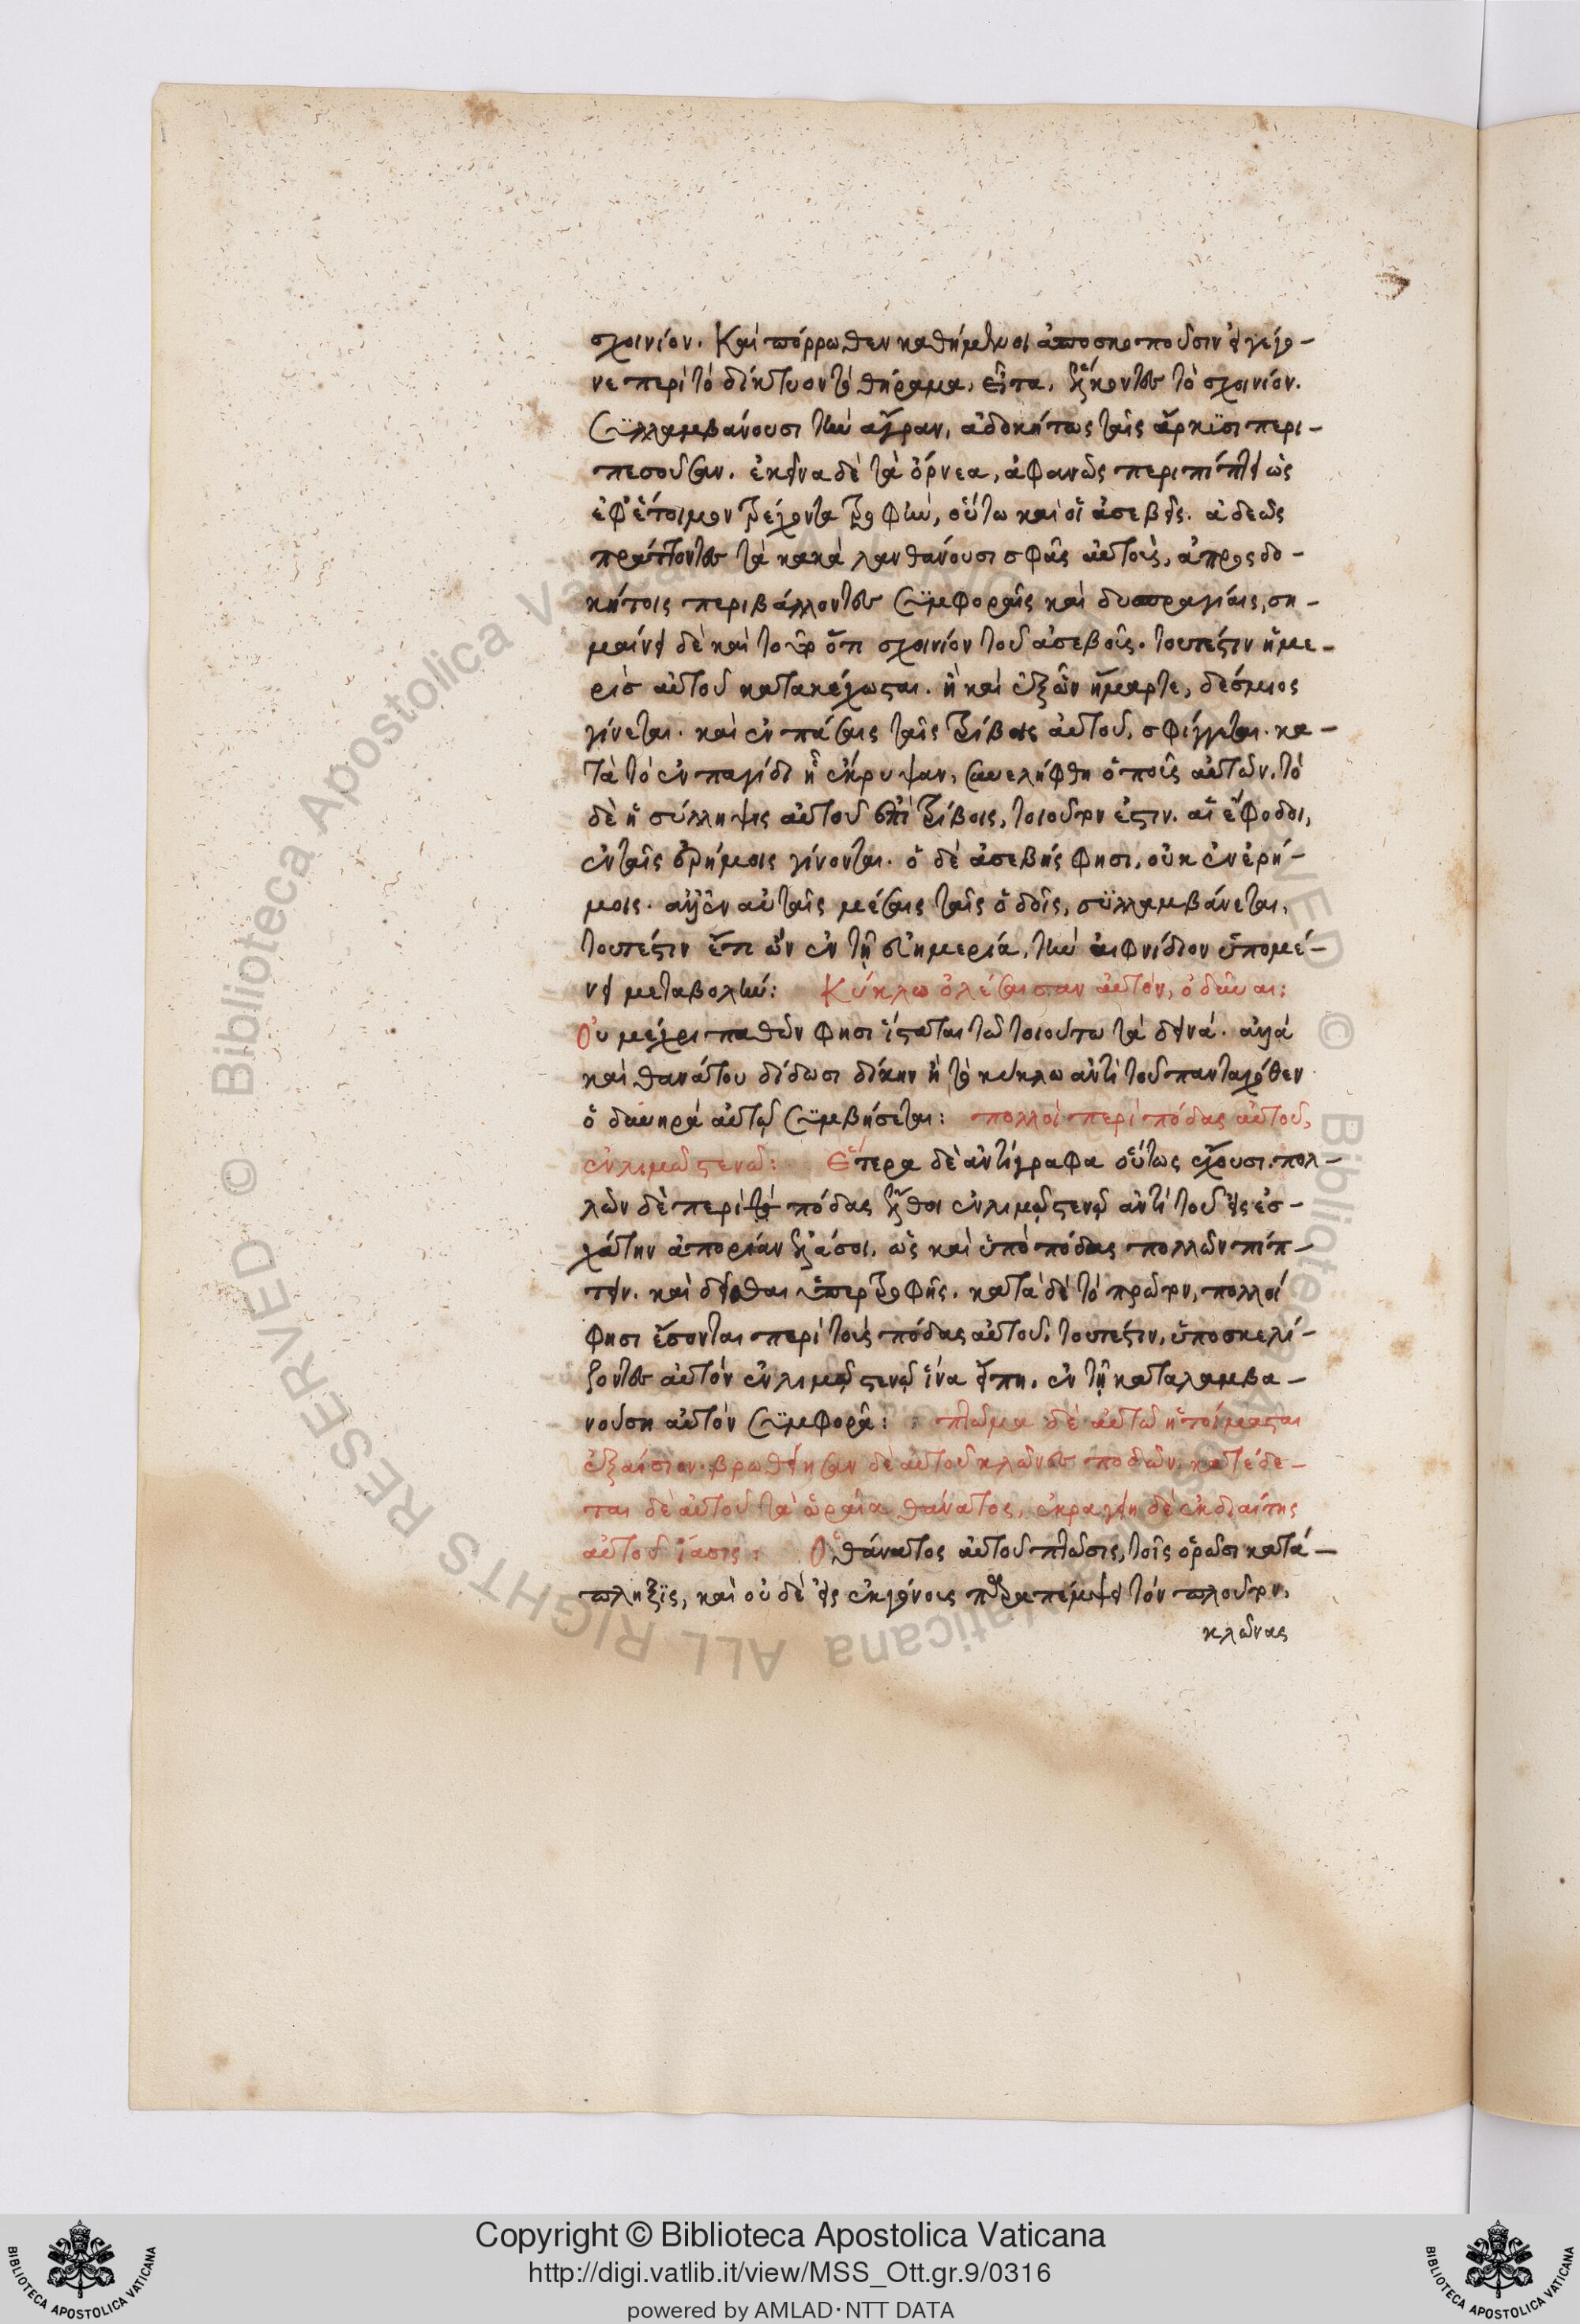 σχοινίον. Καὶ πόρρωθεν καθήμενοι ἀποσκοποῦσιν εἰ γέγο-
νε περὶ τὸ δίκτυον τὸ θήραμα, εἶτα, ἕλκοντες τὸ σχοινίον.
συλλαμβάνουσι τὴν ἄγραν, ἀδοκήτως ταῖς ἄρκυσι περι-
πεσοῦσαν. ἐκεῖνα δὲ τὰ ὄρνεα, ἀφανῶς περιπίπτει ὡς
ἐφ' ἕτοιμον τρέχοντα τροφὴν, οὕτω καὶ οἱ ἀσεβεῖς. ἀδεῶς
πράττοντες τὰ κακὰ λανθάνουσι σφᾶς αὐτοὺς, ἀπροσδο-
κήτοις περιβάλλοντες συμφοραῖς καὶ δυσπραγίαις, ση-
μαίνει δὲ καὶ τοῦτο ὅτι σχοινίον τοῦ ἀσεβοῦς. τουτέστιν ἡ με-
ρὶσ αὐτοῦ κατακέχωσται. ἢ καὶ ἐξ ὧν ἥμαρτε, δέσμιος
γίνεται. καὶ ἐν πάσαις ταῖς τρίβοις αὐτοῦ, σφίγγεται. κα-
τὰ τὸ ἐν παγίδι ᾗ ἔκρυψαν, συνελήφθη ὁ ποῦς αὐτῶν. τὸ
δὲ ἡ σύλληψις αὐτοῦ ἐπὶ τρίβοις, τοιοῦτον ἐστιν. αἱ ἔφοδοι,
ἐν ταῖς ἐρήμοις γίνονται. ὁ δὲ ἀσεβής φησι, οὐκ ἐν ἐρή-
μοις. ἀλλ' ἐν αὐταῖς μέσαις ταῖς ὁδοῖς, συλλαμβάνεται,
τουτέστιν ἔτι ὢν ἐν τῇ εὐημερία, τὴν αἰφνίδιον ὑπομέ-
νει μεταβολήν: Κύκλω ὀλέσαισαν αὐτὸν, ὀδύναι:
Οὐ μέχρι παθῶν φησι ἵσταται τῶ τοιούτω τὰ δεινά. ἀλλὰ
καὶ θανάτου δίδωσι δίκην ἢ τὸ κύκλω ἀντὶ τοῦ πανταχόθεν
ὀδυνηρὰ αὐτῷ συμβήσεται: πολλοὶ περὶ πόδας αὐτοῦ,
ἐν λιμῷ στενῷ: Ἕτερα δὲ ἀντίγραφα οὕτως ἔχουσι. πολ-
λῶν δὲ περὶ τὸ πόδας ἔλθοι ἐν λιμῷ στενῷ ἀντὶ τοῦ εἰς ἐσ-
χάτην ἀπορίαν ἐλάσοι, ὡς καὶ ὑπὸ πόδας πολλῶν πίπ-
τειν. καὶ δεῖσθαι ὑπὲρ τροφῆς. κατὰ δὲ τὸ πρῶτον, πολλοί
φησι ἔσονται περὶ τοὺς πόδας αὐτοῦ, τουτέστιν, ὑποσκελί-
ζοντες αὐτὸν ἐν λιμῷ στενῷ ἵνα εἴπη, ἐν τῇ καταλαμβα-
νούση αὐτὸν συμφορᾶ: πτῶμα δὲ αὐτῶ ἡτοίμασται
ἐξαίσιον. βρωθείησαν δὲ αὐτοῦ κλῶνες ποδῶν, κατέδε-
ται δὲ αὐτοῦ τὰ ὡραῖα θάνατος, ἐκραγείη δὲ ἐκ διαίτης
αὐτοῦ ἴασις: Ὁ θάνατος αὐτοῦ πτῶσις, τοῖς ὁρῶσι κατά-
πληξις, καὶ οὐδὲ εἰς ἐκγόνους παραπέμψει τὸν πλοῦτον,
κλῶνας
Copyright © Biblioteca Apostolica Vaticana
http://digi.vatlib.it/view/MSS_Ott.gr.9/0316
powered by AMLAD·NTT DATA